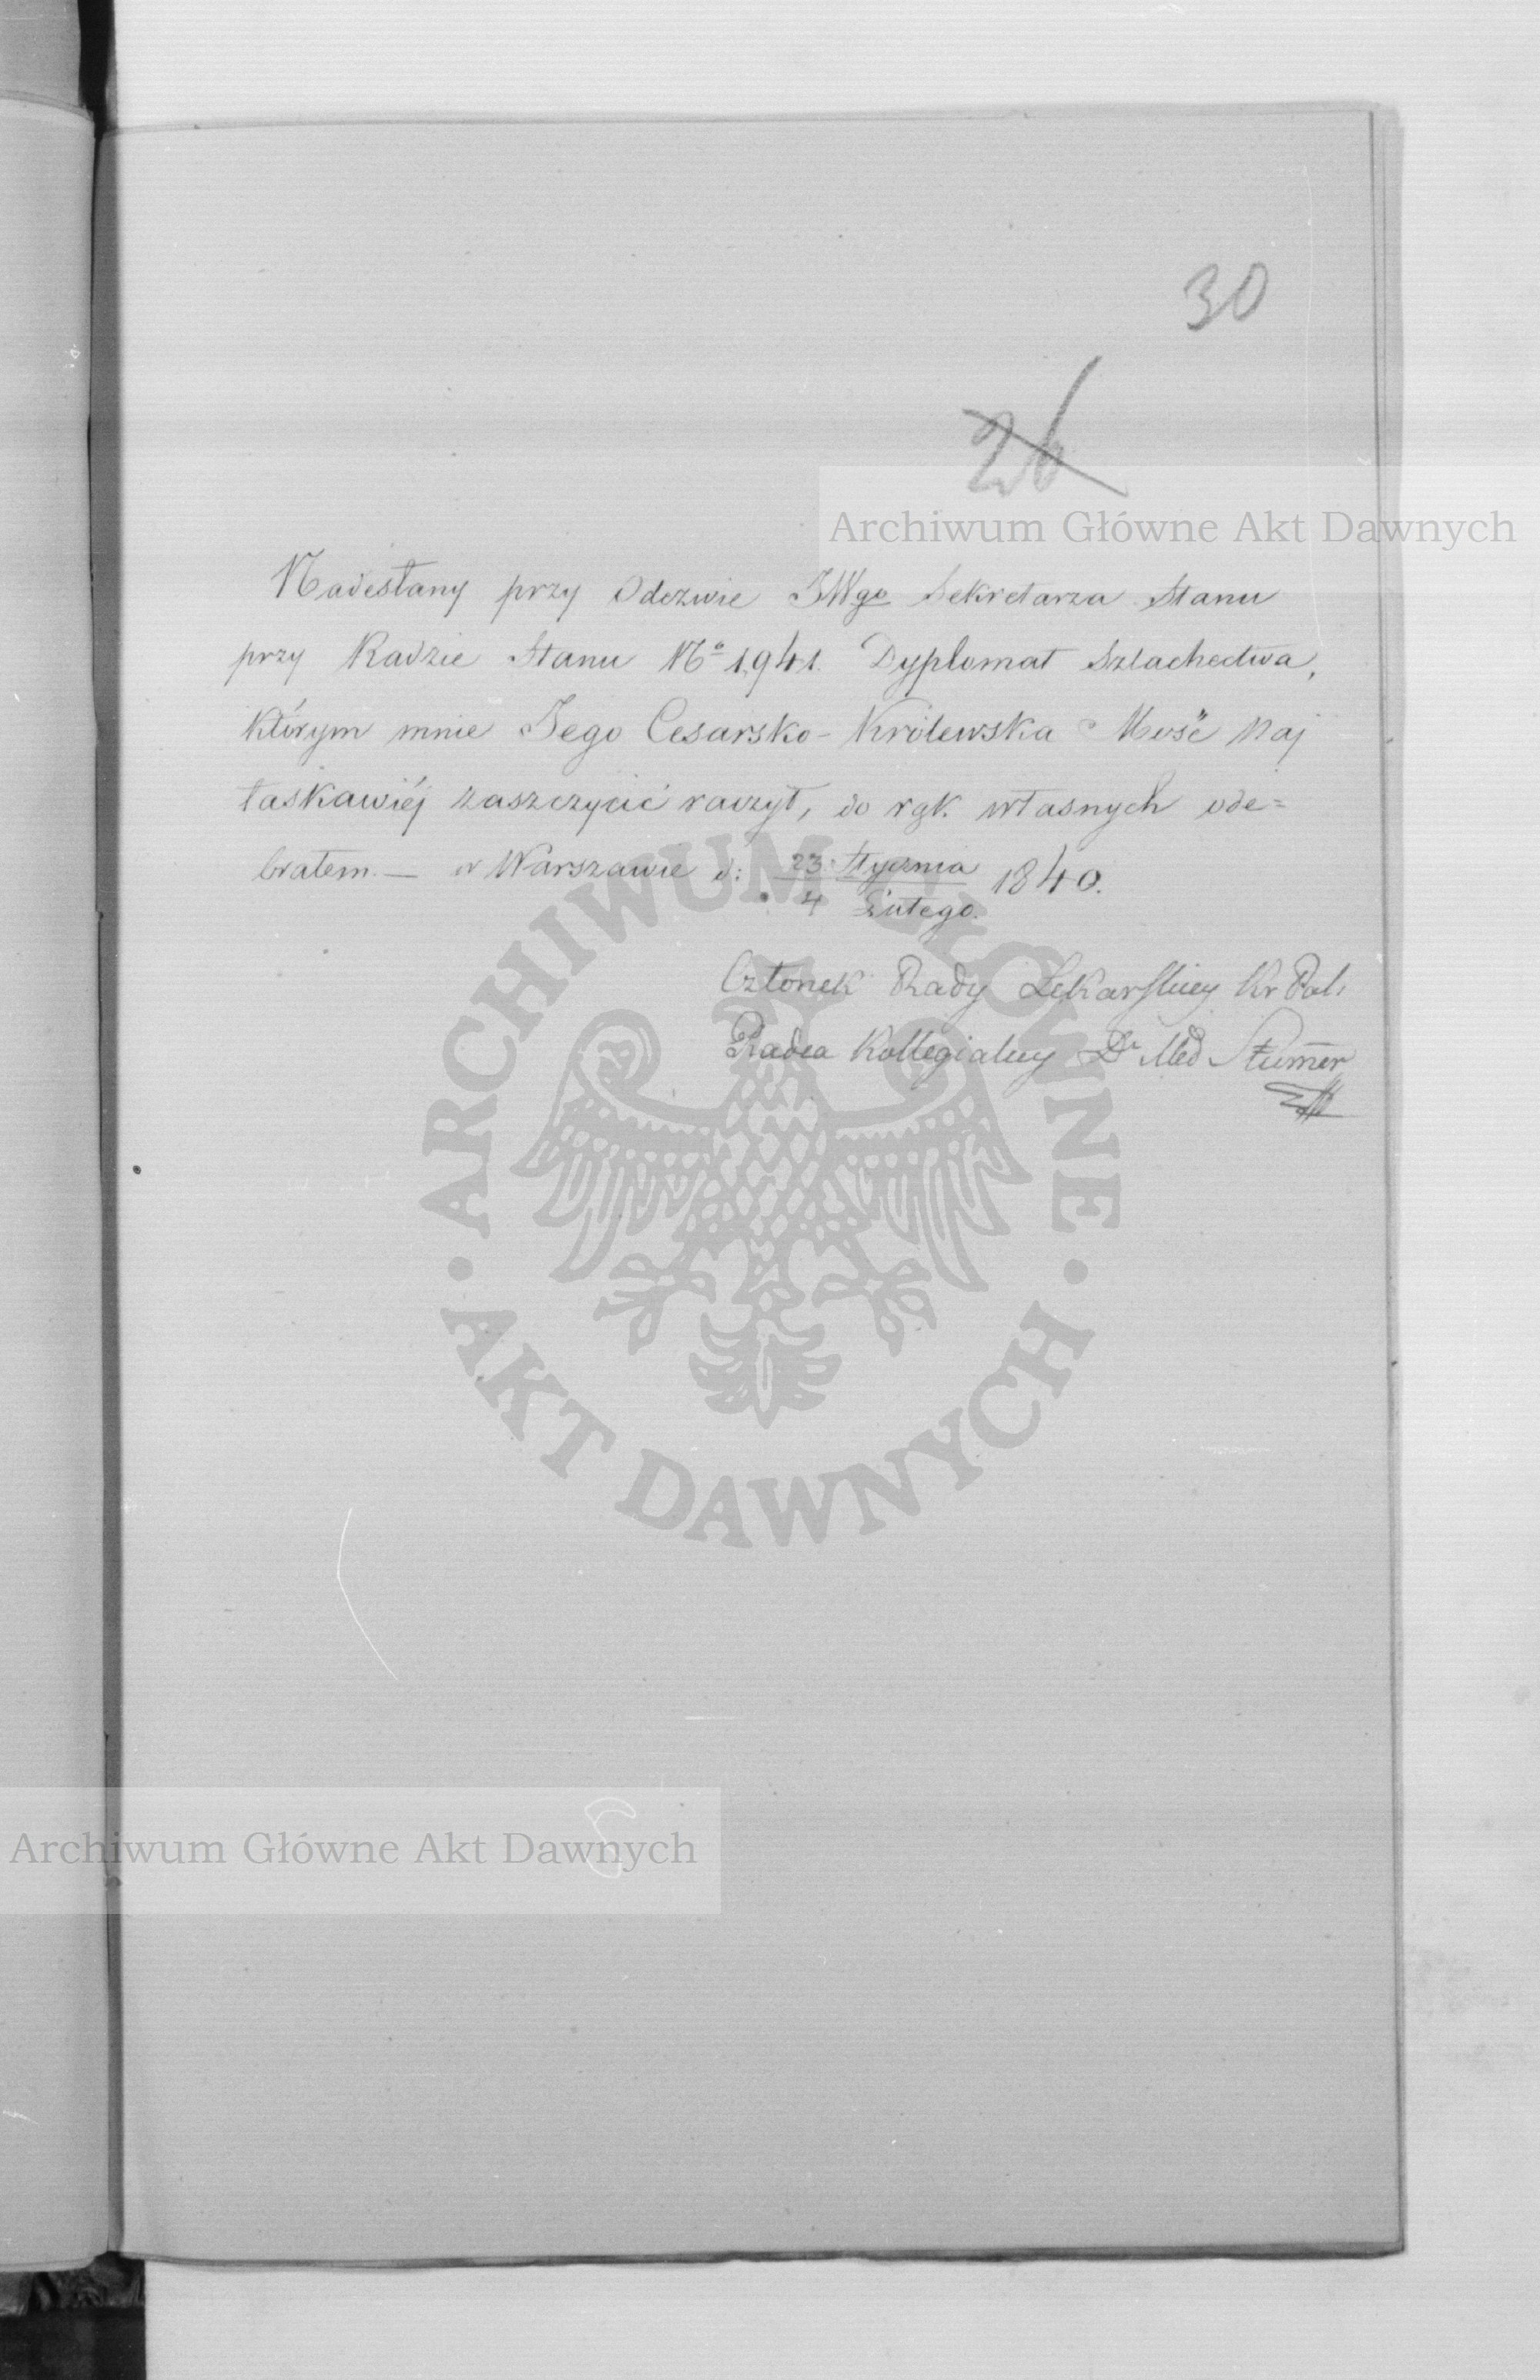 30
26
Archiwum Główne Akt Dawnych
Nadesłany przy Odezwie JWgo Sekretarza Stanu
przy Radzie Stanu No 1,941. Dyplomat Szlachectwa,
którym mnie Jego Cesarsko-Królewska Mość Naj
łaskawiéj zaszczycić raczył, do rąk własnych ode=
brałem. — w Warszawie d: 23 Stycznia 1840.
4 Lutego.
Członek Rady Lekarskiey Kr Pol:
Radca Kollegialny Dr Med Stummer
ARCHIWUM GŁÓWNE
AKT DAWNYCH
Archiwum Główne Akt Dawnych